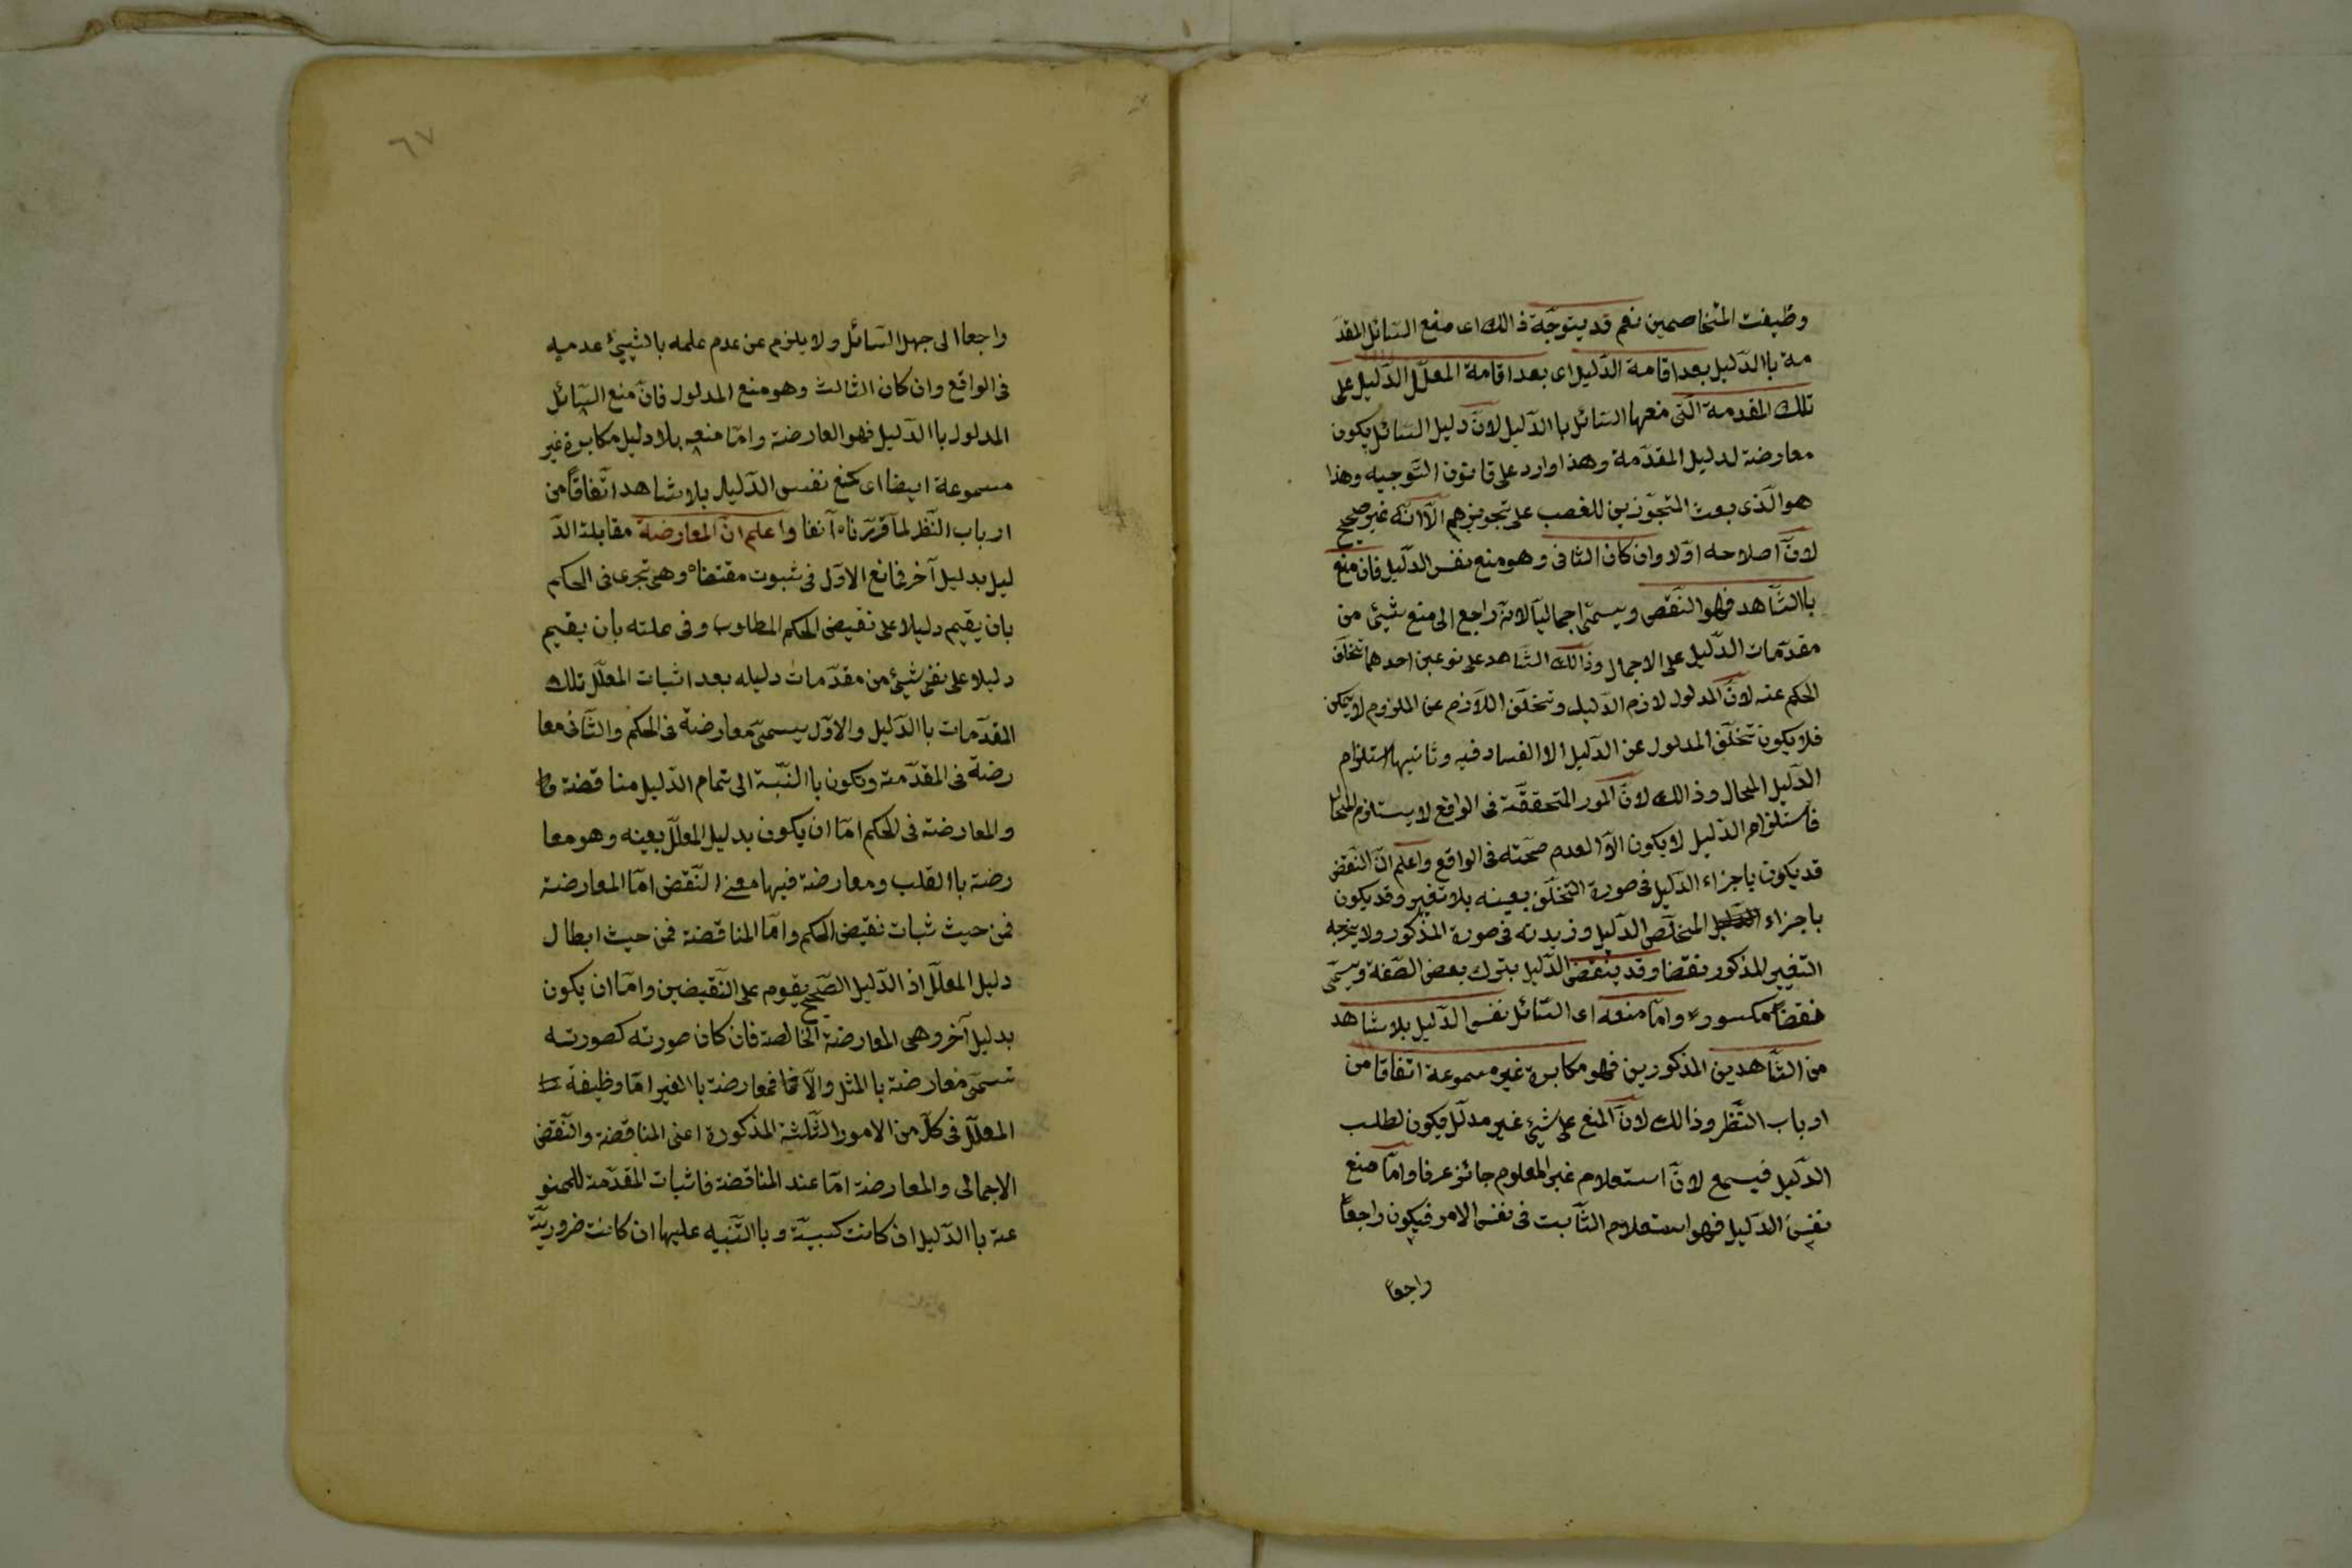 وظيفت المتخاصمين نعم قد يتوجّه ذالك اى منع السّائل المقدّ
مة باالدّليل بعد اقامة الدّليل اى بعد اقامة المعلّل الدّليل على
تلك المقدمة الّتى منعها السّائل باالدّليل لانّ دليل السّائل يكون
معارضة لدليل المقدّمة وهذا وارد على قانون التّوجيه وهذا
هو الّذى بعث المتجوّزين للغصب على تجويزهم الّا انّه غير صحيح
لانّ اصلاحه اوّلا وان كان الثانى وهو منع نفس الدّليل فان منع
باالشّاهد فهو النّقض ويسمّى اجماليّا لانّه راجع الى منع شيئ من
مقدّمات الدّليل على الاجمال وذالك الشّاهد على نوعين احدهما تخلّف
الحكم عنه لانّ المدلول لازم الدّليل وتخلّف اللّازم عن الملزوم لا يمكن
فلا يكون تخلّف المدلول عن الدّليل الا لفساد فيه وثانيها استلزام
الدّليل المحال وذالك لانّ المور المتحققّة فى الواقع لا يستلزم المحال
فاستلزام الدّليل لا يكون الّا لعدم صحّته فى الواقع واعلم انّ النّقض
قد يكون باجزاء الدّليل فى صورة التخلّف بعينه بلا تغيير وقد يكون
باجزاء المتخلّص الدّليل وزيدته فى صورة المذكور ولا يخرجه
التغيير المذكور نقضا وقد ينقض الدّليل بترك بعض الصّفة ويسمّى
نقضاً مكسورا وامّا منعه اى السّائل نفس الدّليل بلا شاهد
من الشّاهدين المذكورين فهو مكابرة غير مسموعة اتفاقا من
ارباب النّظر وذالك لانّ المنع على شيئ غير مدلّل فيكون لطلب
الدّليل فيسمع لانّ استعلام غير المعلوم جائز عرفا وامّا منع
نفس الدّليل فهو استعلام الثّابت فى نفس الامر فيكون راجعاً
راجعا
٦٧
راجعا الى جهل السّائل ولا يلزم عن عدم علمه بالشّيئ عدميه
فى الواقع وان كان الثالث وهو منع المدلول فانّ منع السّائل
المدلول باالدّليل فهو العارضة وامّا منعه بلا دليل مكابرة غير
مسموعة ايضا اى كمنع نفس الدّليل بلا شاهد اتّفاقاً من
ارباب النّظر لما قرّرناه آنفا واعلم انّ المعارضة مقابلة الدّ
ليل بدليل آخر ممانع الاوّل فى ثبوت مقتضاه وهى تجرى فى الحكم
بان يقيم دليلا على نقيض الحكم المطلوب وفى علته بأن يقيم
دليلا على نفى شيئ من مقدّمات دليله بعد اثبات المعلّل تلك
المقدّمات باالدّليل والاوّل يسمىّ معارضة فى الحكم والثّانى معا
رضة فى المقدّمة وتكون باالنّبّة الى تمام الدّليل مناقضة
والمعارضة فى الحكم امّا ان يكون بدليل المعلّل بعينه وهو معا
رضة باالقلب ومعارضة فيها معنى النّقض امّا المعارضة
فمن حيث ثبات نقيض الحكم وامّا المناقضة فمن حيث ابطال
دليل المعلّل اذ الدّليل الصّحيح يقوم على النّقيضين وامّا ان يكون
بدليل آخر وهى المعارضة الخالصة فان كان صورته كصورته
تسمّى معارضة باالمثل والّا فمعارضة باالغير امّا وظيفة
المعلّل فى كلّ من الامور الثّلثة المذكورة اعنى المناقضة والنّقض
الاجمالى والمعارضة امّا عند المناقضة فاثبات المقدّمة الممنو
عة باالدّليل ان كانت كسبيّة وباالتّنبيه عليها ان كانت ضروريّة